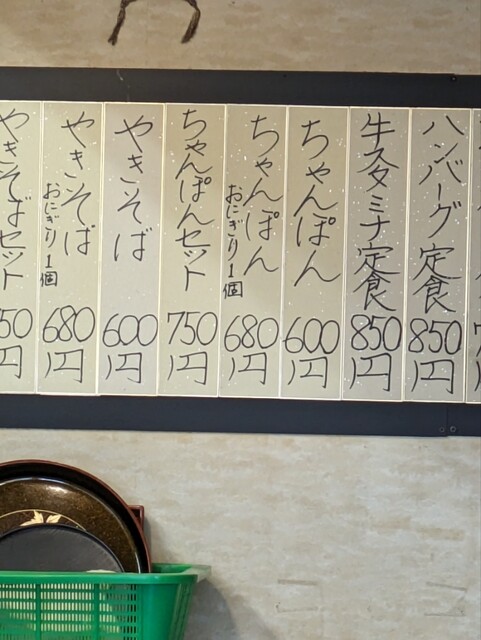 ハンバーグ定食
850円
牛スタミナ定食
850円
ちゃんぽん
600円
ちゃんぽん
おにぎり1個
680円
ちゃんぽんセット
750円
やきそば
600円
やきそば
おにぎり1個
680円
やきそばセット
50円